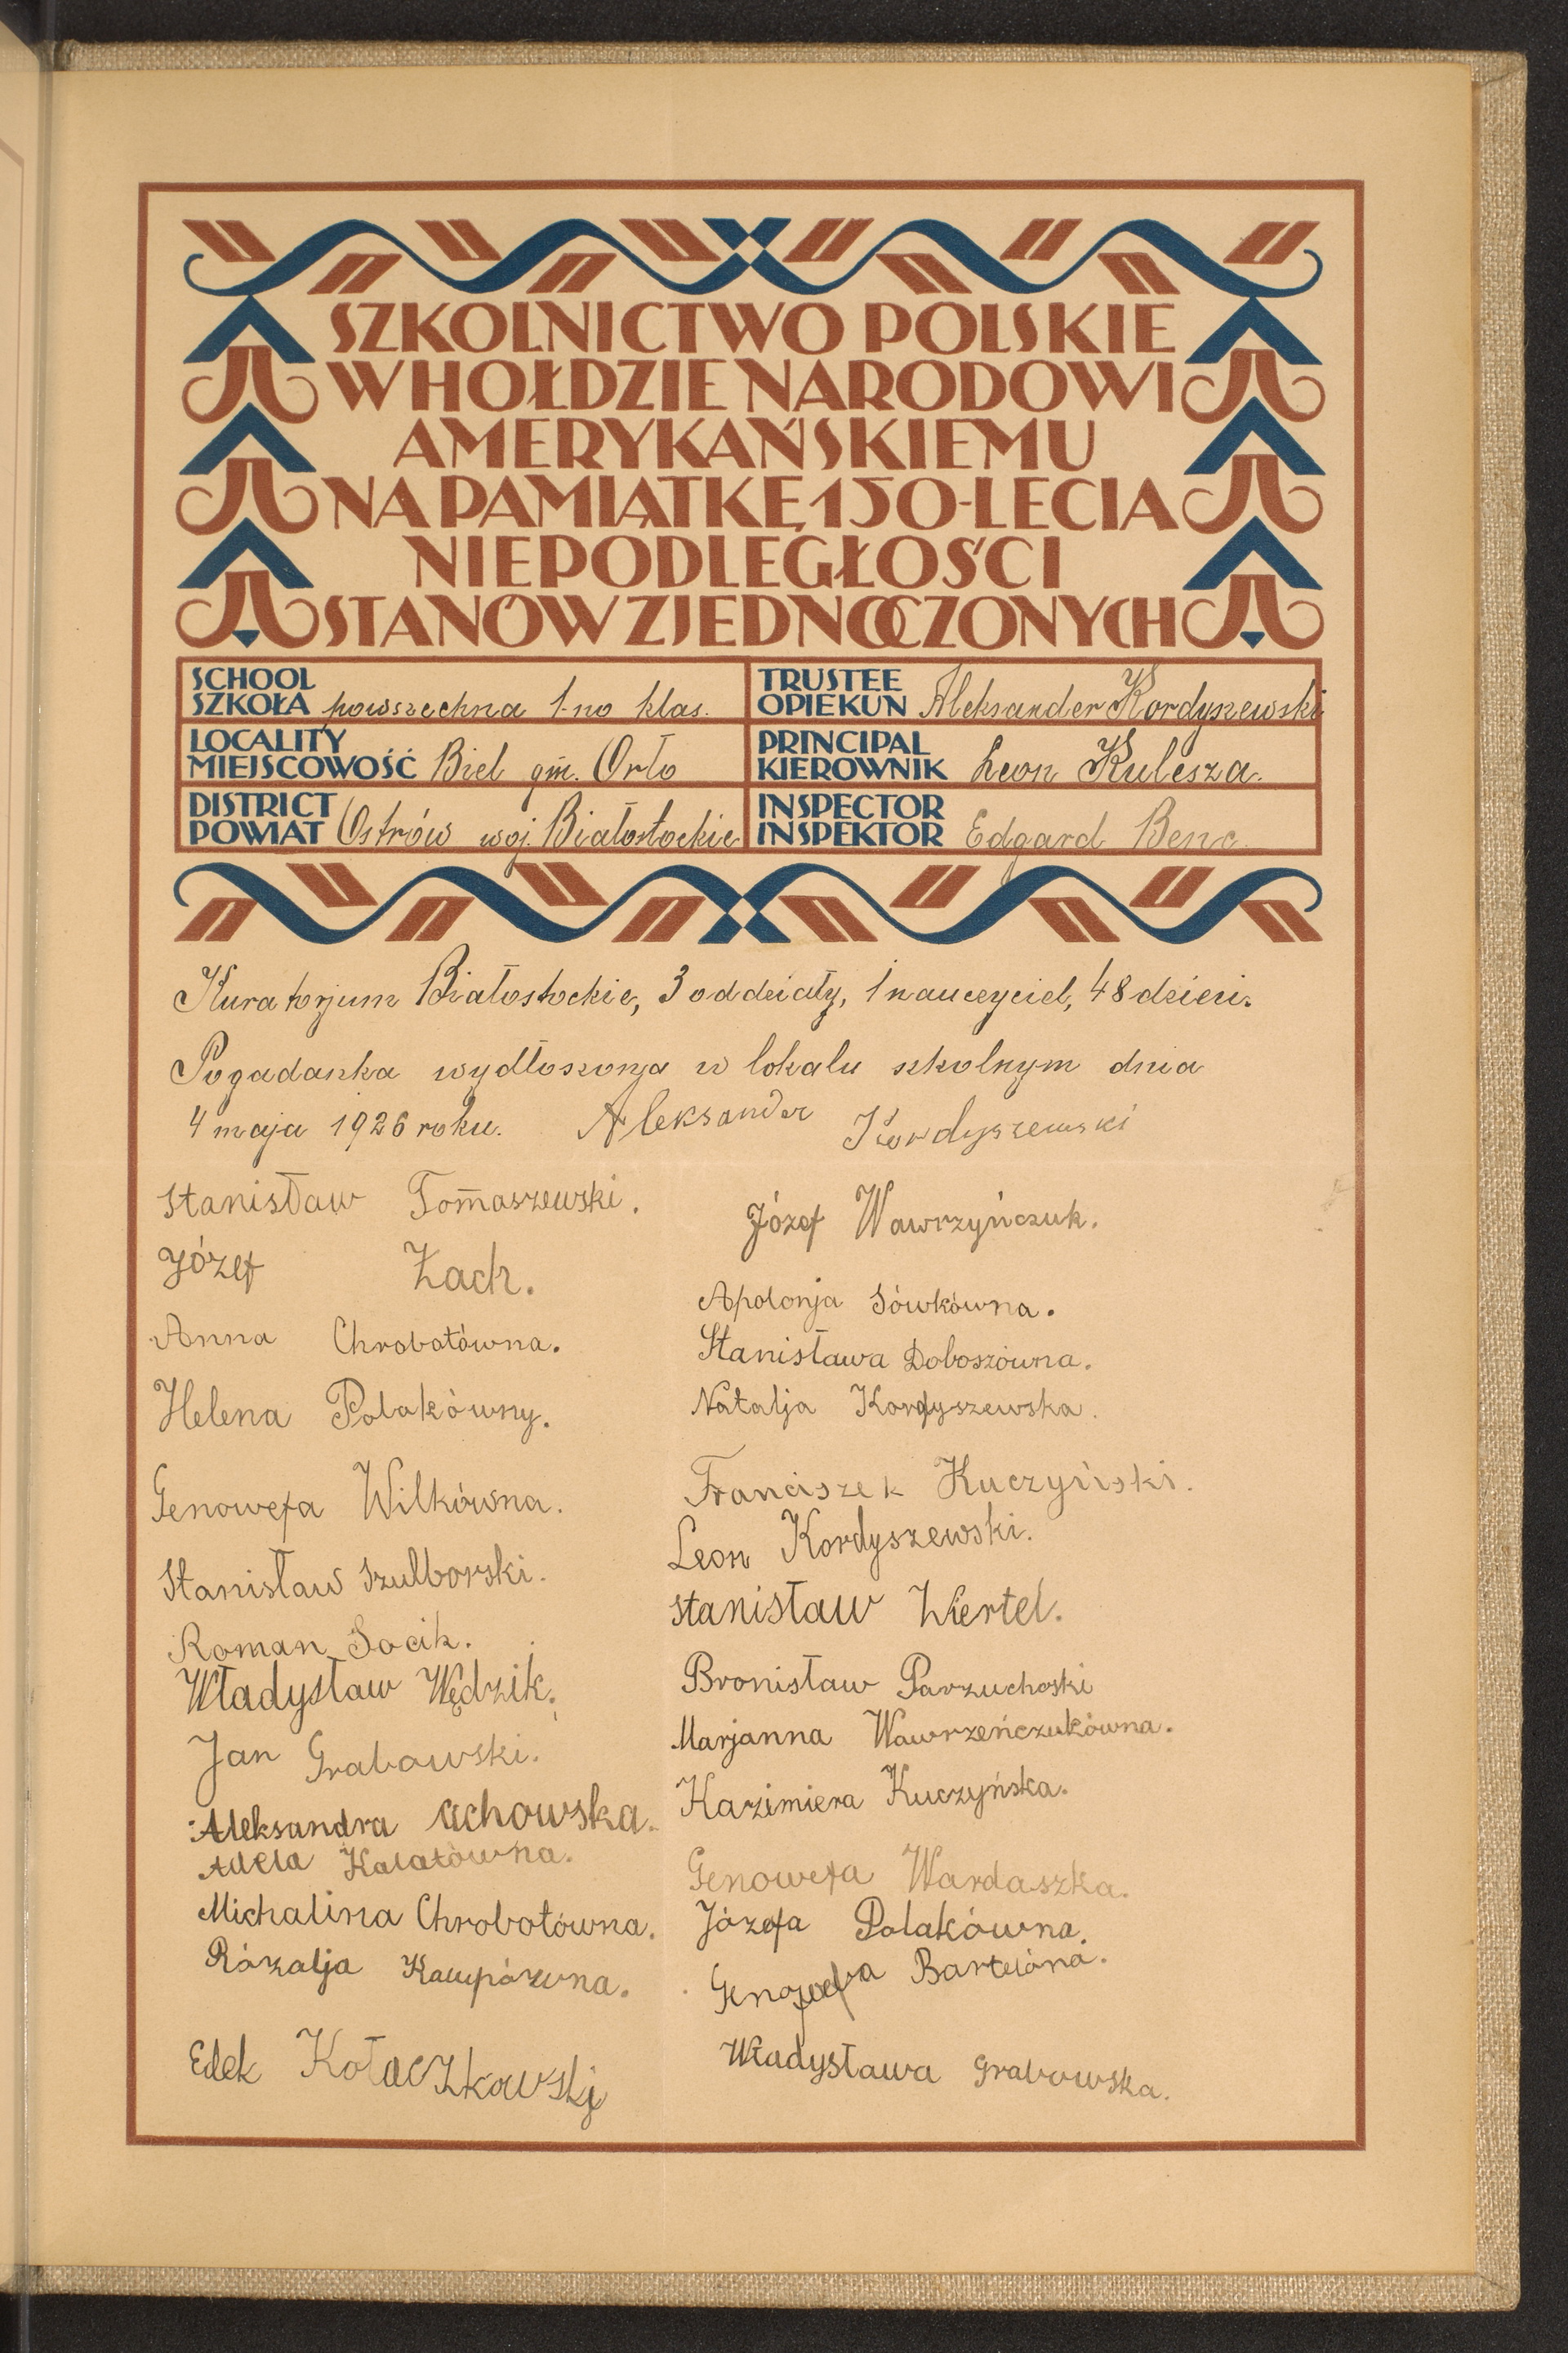 SZKOLNICTWO POLSKIE
W HOŁDZIE NARODOWI
AMERYKAŃSKIEMU
NA PAMIĄTKĘ 150-LECIA
NIEPODLEGŁOŚCI
STANÓW ZJEDNOCZONYCH
SCHOOL
SZKOŁA powszechna 1-no klas.
TRUSTEE
OPIEKUN Aleksander Kordyszewski
LOCALITY
MIEJSCOWOŚĆ Biel gm. Orło
PRINCIPAL
KIEROWNIK Leon Kulesza.
DISTRICT
POWIAT Ostrów woj. Białostockie
INSPECTOR
INSPEKTOR Edgard Benc
Kuratorjum Białostockie, 3 oddziały, 1 nauczyciel, 48 dzieci.
Pogadanka wydłoszona w lokalu szkolnym dnia
4 maja 1926 roku. Aleksander Kordyszewski
Stanisław Tomaszewski.
Józef Żach.
Anna Chrobotówna.
Helena Polakówny.
Genowefa Wilkówna.
Stanisław Szulborski.
Roman Socik.
Władysław Wędzik.
Jan Grabowski.
Aleksandra Uchowska.
Adela Kalatówna.
Michalina Chrobotówna.
Rózalja
Edek Kołaczkowski
Józef Wawrzyńczuk.
Apolonja Sówkówna.
Stanisława Doboszówna.
Natalja Kordyszewska.
Franciszek Kuczyński.
Leon Kordyszewski.
Stanisław Wiertel.
Bronisław Parzuchoski
Marjanna Wawrzeńczukówna.
Kazimiera Kuczyńska.
Genowefa Wardaszka.
Józefa Polakówna.
Władysława Grabowska.